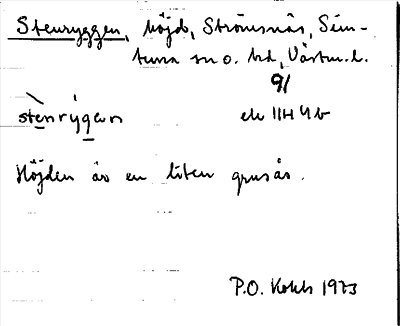 Stenryggen, höjd, Strömsnäs, Sim-
tuna sn o. hd, Västm.l.
91
stènrýgen ek 11H 4b
Höjden är en liten grusås.
P.O. 1973